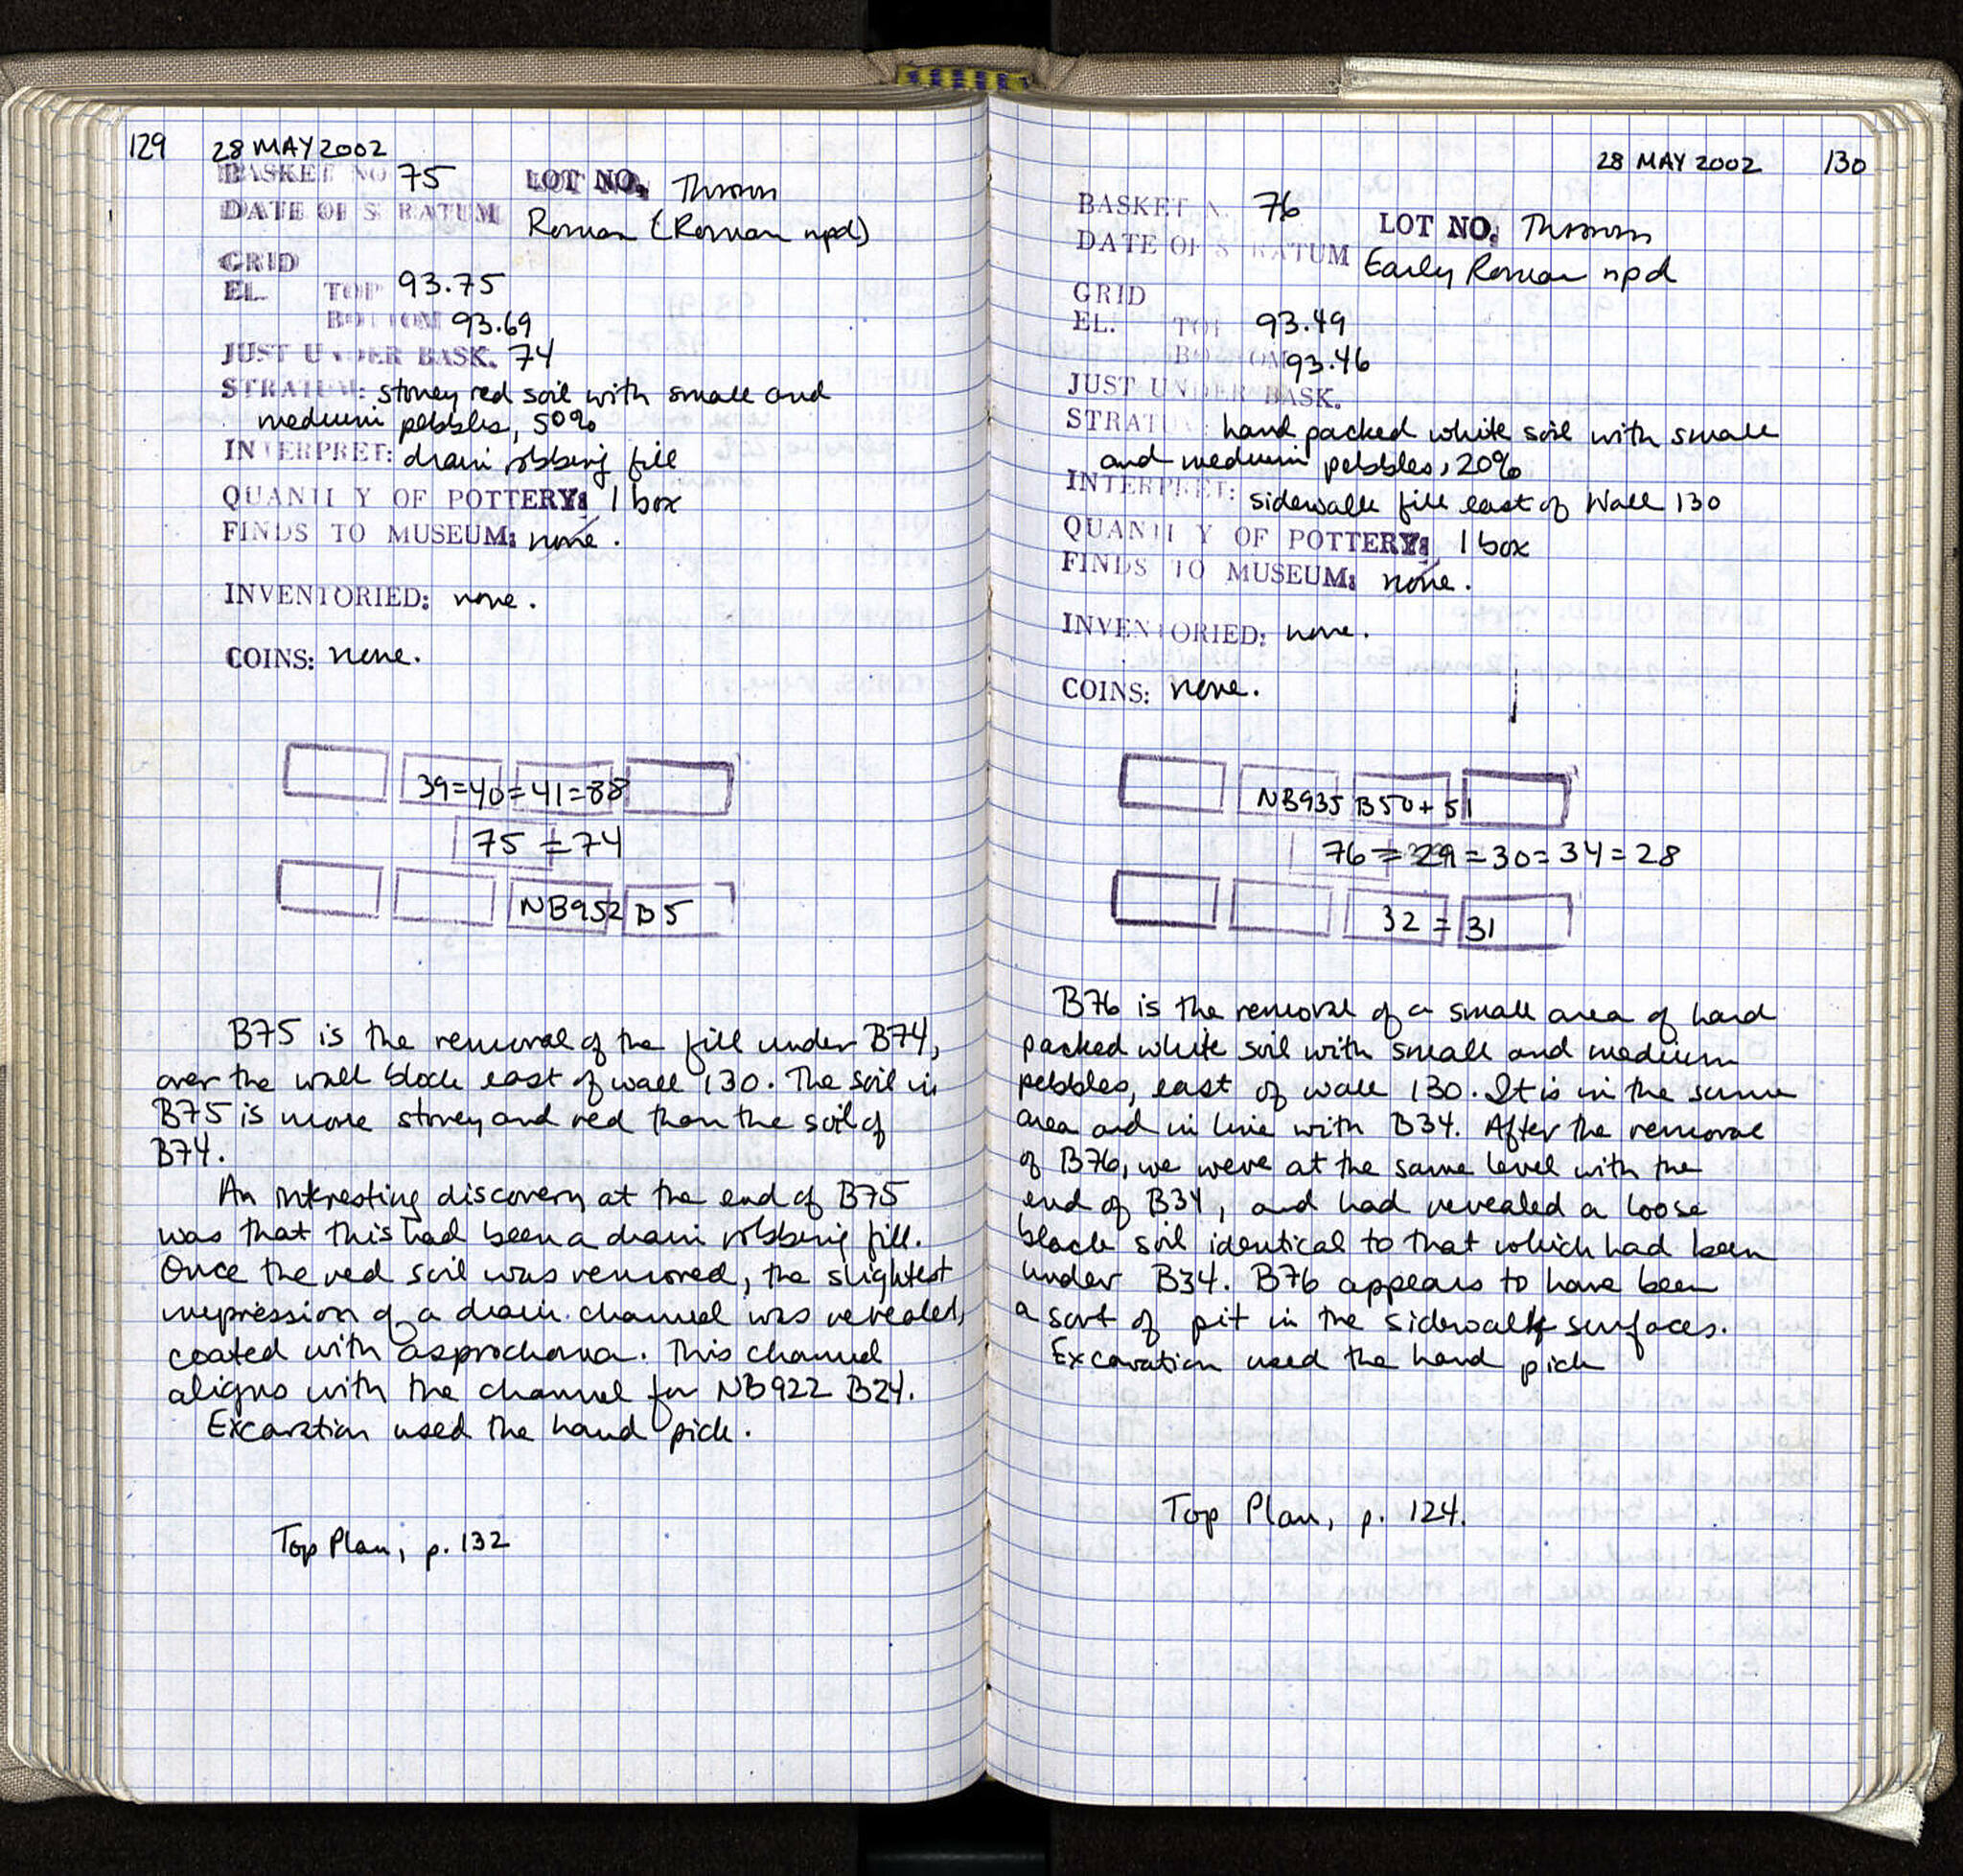 129 28 MAY 2002
BASKET NO 75 LOT NO. Thrown
DATE OF STRATUM Roman (Roman npd)
GRID
EL. TOP 93.75
BOTTOM 93.69
JUST UNDER BASK. 74
STRATUM: stoney red soil with small and
medium pebbles, 50%
INTERPRET: drain robbing fill
QUANTITY OF POTTERY: 1 box
FINDS TO MUSEUM: none.
INVENTORIED: none.
COINS: none.
39=40=41=88
75 = 74
NB952 B5
B75 is the removal of the fill under B74,
over the wall block east of wall 130. The soil in
B75 is more stoney and red than the soil of
B74.
An interesting discovery at the end of B75
was that this had been a drain robbing fill.
Once the red soil was removed, the slightest
impression of a drain channel was revealed,
coated with asprochoma. This channel
aligns with the channel for NB922 B24.
Excavation used the hand pick.
Top Plan, p. 132
28 MAY 2002 130
BASKET N. 76 LOT NO. Thrown
DATE OF STRATUM Early Roman npd
GRID
EL. TOP 93.49
BOTTOM 93.46
JUST UNDER BASK.
STRATUM: hard packed white soil with small
and medium pebbles, 20%
INTERPRET: sidewalk fill east of Wall 130
QUANTITY OF POTTERY: 1 box
FINDS TO MUSEUM: none.
INVENTORIED: none.
COINS: none.
NB935 B50+51
76 = 29 = 30 = 34 = 28
32 = 31
B76 is the removal of a small area of hard
packed white soil with small and medium
pebbles, east of wall 130. It is in the same
area and in line with B34. After the removal
of B76, we were at the same level with the
end of B34, and had revealed a loose
black soil identical to that which had been
under B34. B76 appears to have been
a sort of pit in the sidewalk surfaces.
Excavation used the hand pick
Top Plan, p. 124.